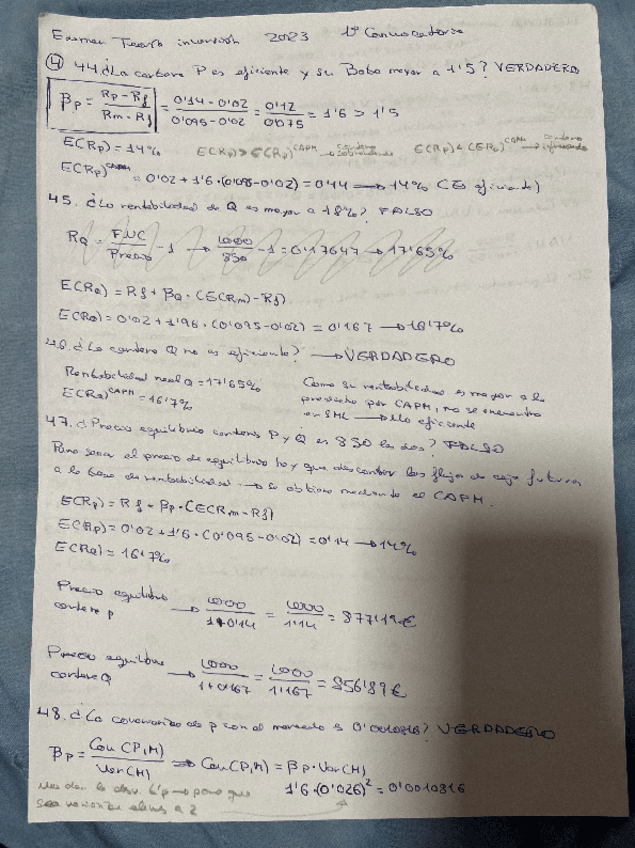 Examen Teoría inversión 2023 1º Convocatoria
④ 44. ¿La cartera P es eficiente y su Beta mayor a 1'5? VERDADERO
βp = Rp - Rf / Rm - Rf = 0'14 - 0'02 / 0'095 - 0'02 = 0'12 / 0'075 = 1'6 > 1'5
E(Rp) = 14%
E(Rp)^CAPM = 0'02 + 1'6 · (0'095 - 0'02) = 0'14 → 14% (Es eficiente)
45. ¿La rentabilidad de Q es mayor a 18%? FALSO
RQ = FNC / Precio - 1 → 1000 / 850 - 1 = 0'17647 → 17'65%
E(RQ) = Rf + βQ · (E(Rm) - Rf)
E(RQ) = 0'02 + 1'96 · (0'095 - 0'02) = 0'167 → 16'7%
46. ¿La cartera Q no es eficiente? → VERDADERO
Rentabilidad real Q = 17'65%
E(RQ)^CAPM = 16'7%
Como su rentabilidad es mayor a la
predicha por CAPM, no se encuentra
en SML → No eficiente
47. ¿Precio equilibrio carteras P y Q es 850 las dos? FALSO
Para sacar el precio de equilibrio hay que descontar los flujos de caja futuros
a la tasa de rentabilidad → se obtiene mediante el CAPM.
E(Rp) = Rf + βp · (E(Rm - Rf)
E(Rp) = 0'02 + 1'6 · (0'095 - 0'02) = 0'14 → 14%
E(RQ) = 16'7%
Precio equilibrio cartera P → 1000 / 1+0'14 = 1000 / 1'14 = 877'19€
Precio equilibrio cartera Q → 1000 / 1+0'167 = 1000 / 1'167 = 856'89€
48. ¿La covarianza de p con el mercado es 0'0010816? VERDADERO
βp = Cov(P,M) / Var(M) ⇒ Cov(P,M) = βp · Var(M)
1'6 · (0'026)² = 0'0010816
Nos dan la desv. típ → para que
sea varianza elevas a 2